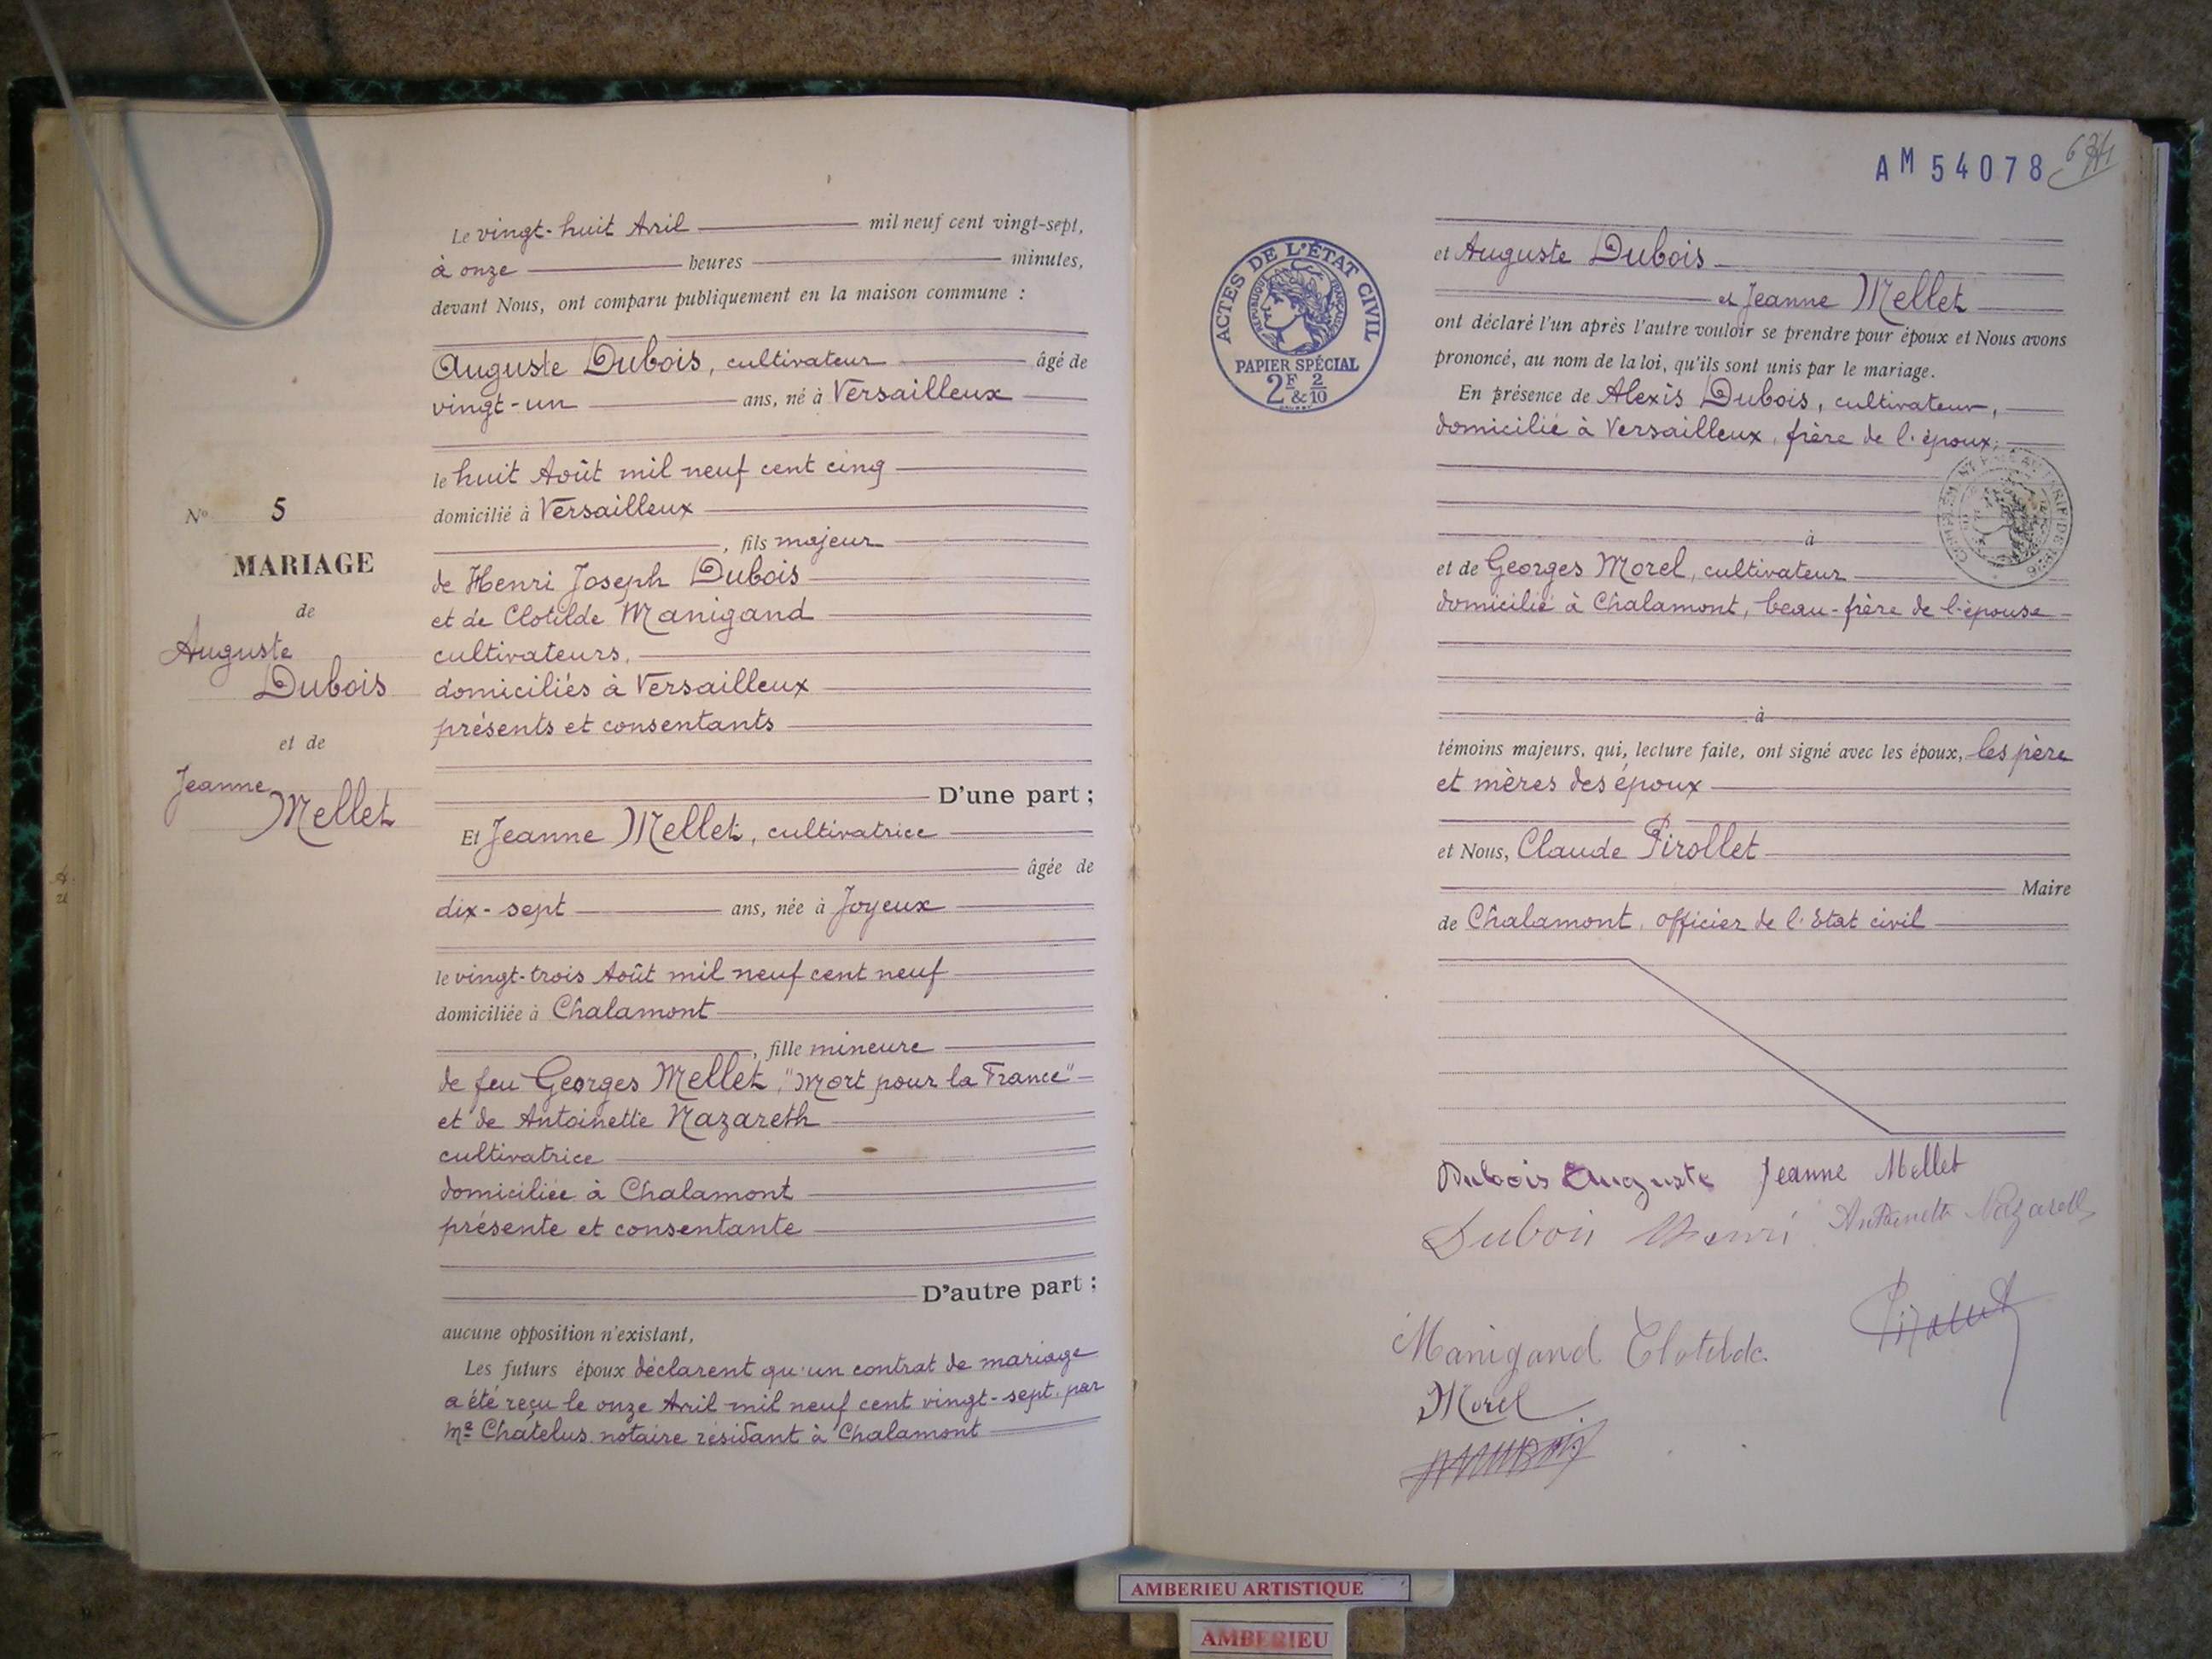 Le vingt-huit Avril mil neuf cent vingt-sept,
à onze heures minutes,
devant Nous, ont comparu publiquement en la maison commune :
Auguste Dubois, cultivateur âgé de
vingt-un ans, né à Versailleux
le huit Août mil neuf cent cinq
domicilié à Versailleux
, fils majeur
de Henri Joseph Dubois
et de Clotilde Manigand
cultivateurs,
domiciliés à Versailleux
présents et consentants
D'une part ;
Et Jeanne Mellet, cultivatrice
âgée de
dix-sept ans, née à Joyeux
le vingt-trois Août mil neuf cent neuf
domiciliée à Chalamont
, fille mineure
de feu Georges Mellet, "Mort pour la France"
et de Antoinette Nazareth
cultivatrice
domiciliée à Chalamont
présente et consentante
D'autre part ;
aucune opposition n'existant,
Les futurs époux déclarent qu'un contrat de mariage
a été reçu le onze Avril mil neuf cent vingt-sept. par
Me Chatelus notaire résidant à Chalamont
No 5
MARIAGE
de
Auguste
Dubois
et de
Jeanne
Mellet
AM 54078
ACTES DE L'ÉTAT CIVIL
RÉPUBLIQUE FRANÇAISE
PAPIER SPÉCIAL
2F & 2/10
et Auguste Dubois
et Jeanne Mellet
ont déclaré l'un après l'autre vouloir se prendre pour époux et Nous avons
prononcé, au nom de la loi, qu'ils sont unis par le mariage.
En présence de Alexis Dubois, cultivateur,
domicilié à Versailleux, frère de l'époux,
à
et de Georges Morel, cultivateur
domicilié à Chalamont, beau-frère de l'épouse
à
témoins majeurs, qui, lecture faite, ont signé avec les époux, les père
et mères des époux
et Nous, Claude Pirollet
Maire
de Chalamont, officier de l'Etat civil
Dubois Auguste Jeanne Mellet
Dubois Henri Antoinette Nazareth
Manigand Clotilde
Morel
AMBERIEU ARTISTIQUE
AMBERIEU